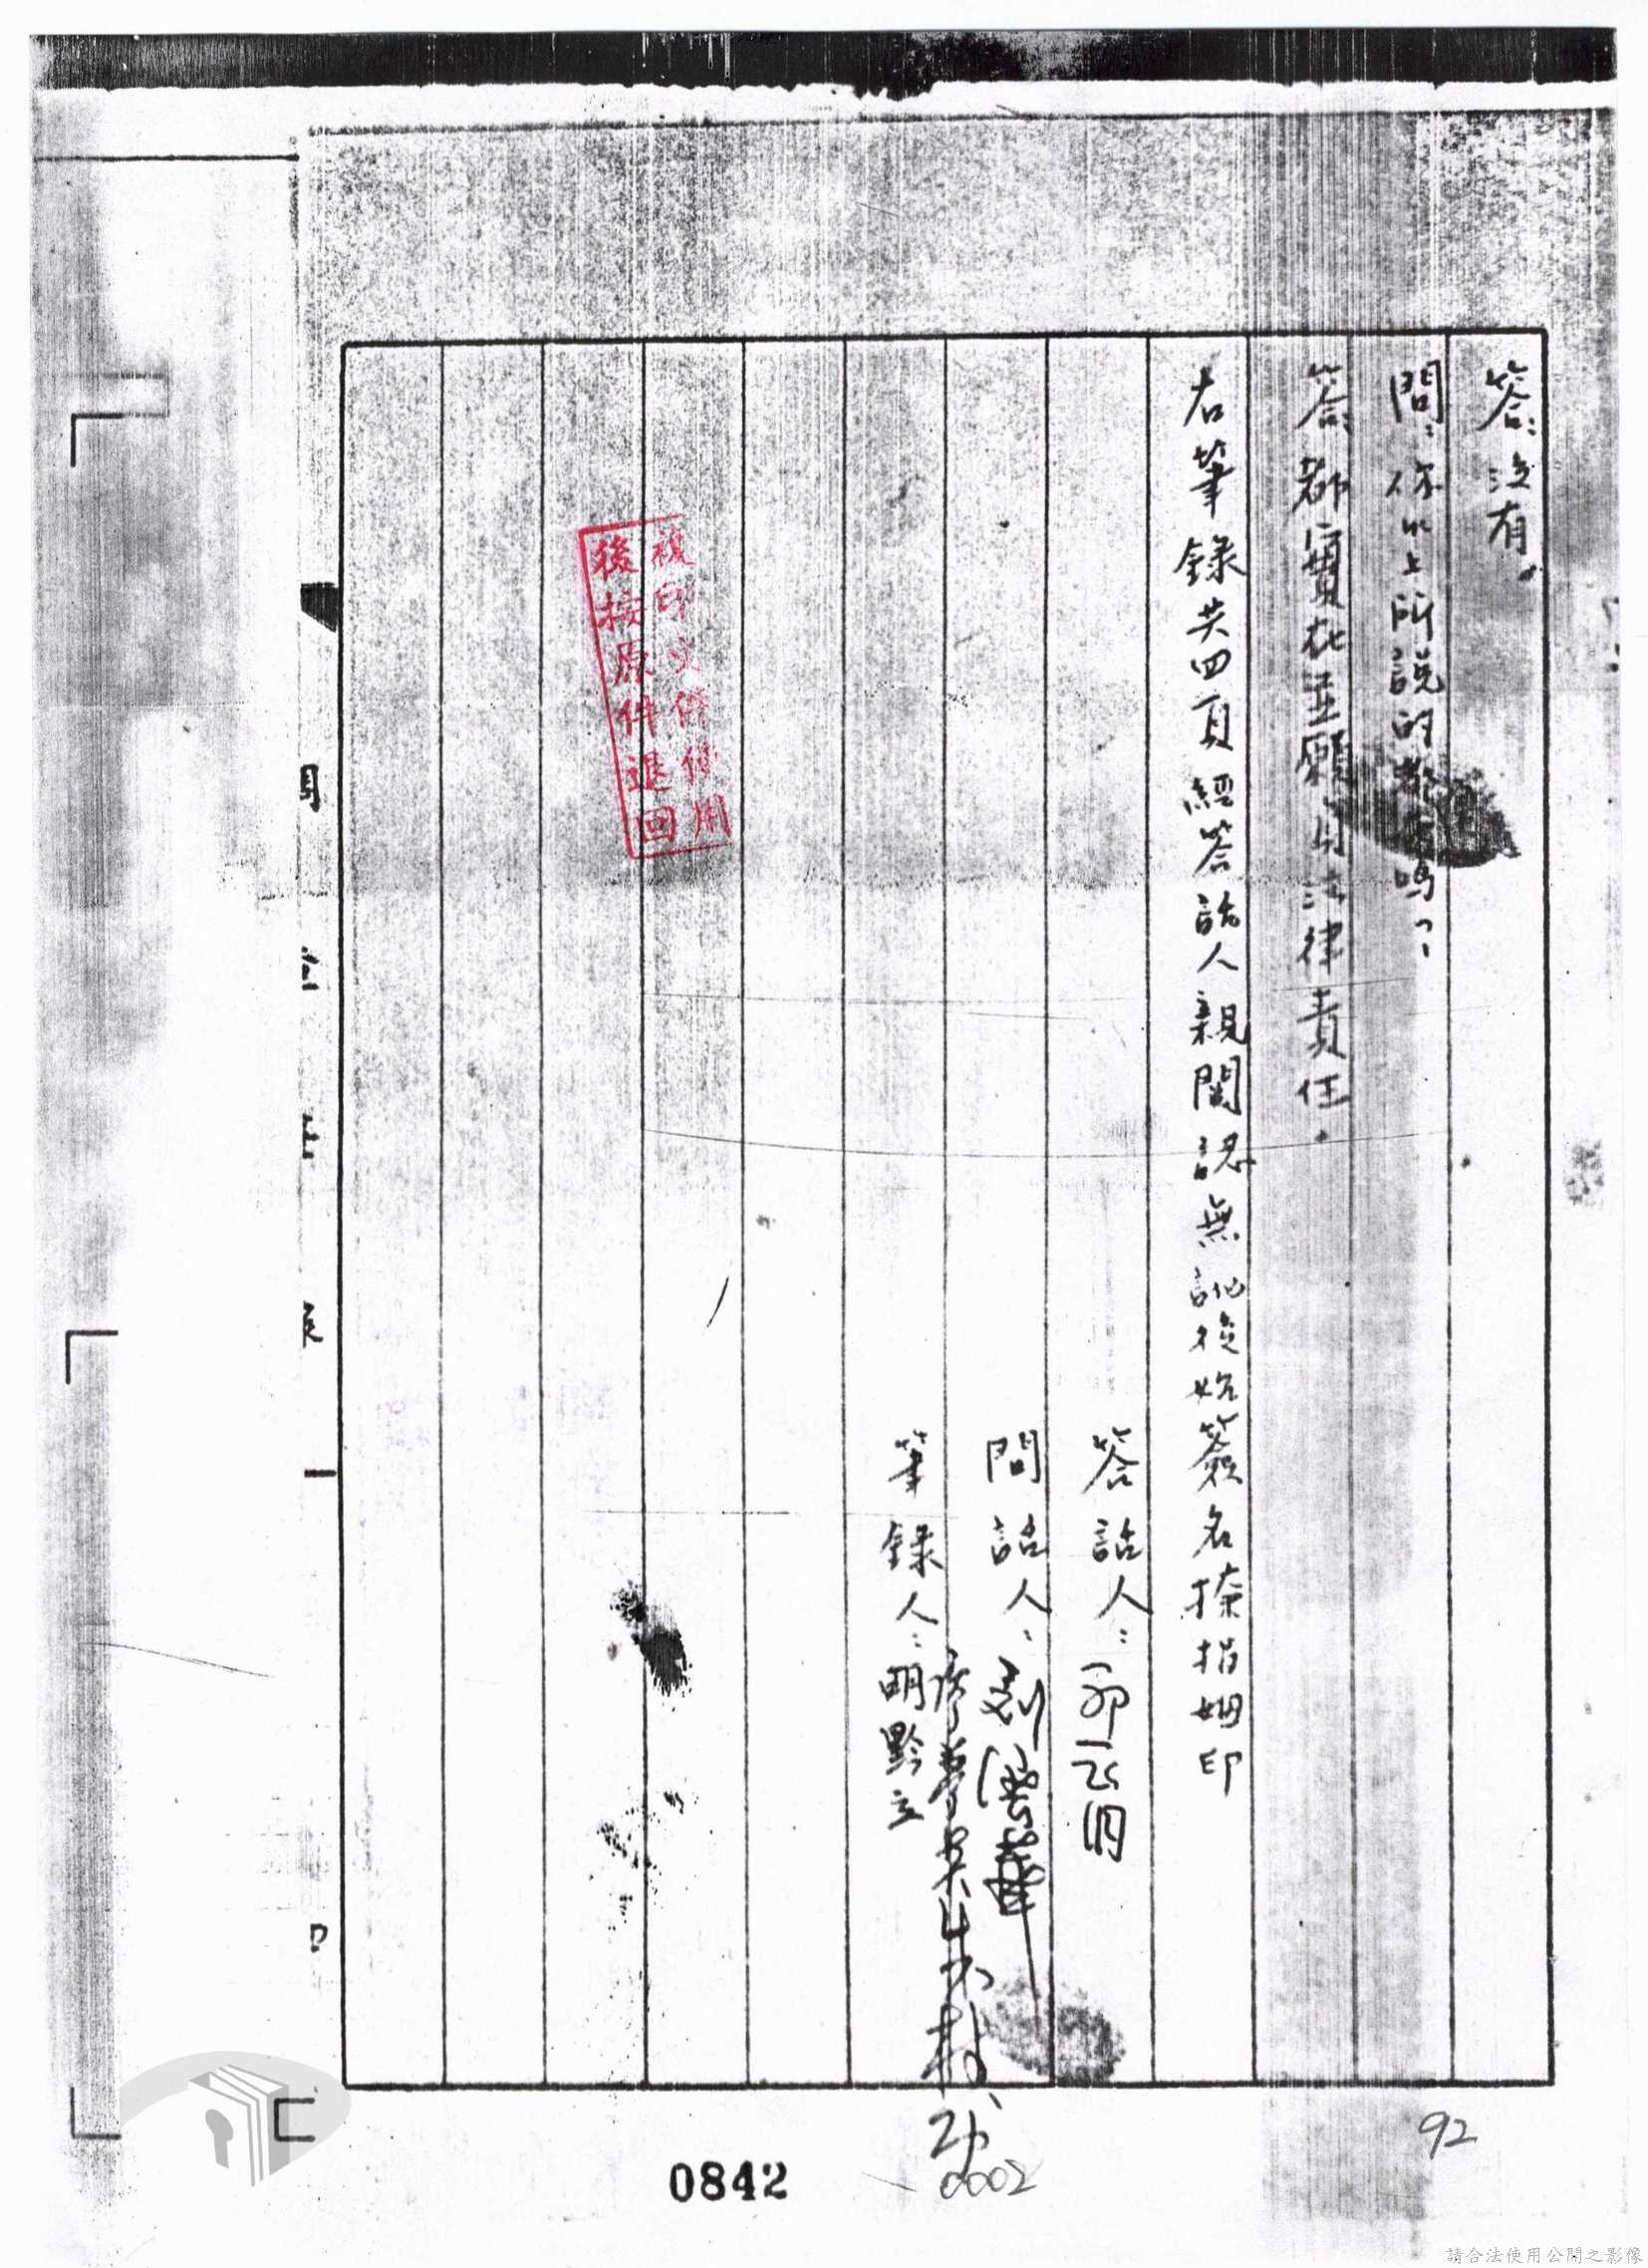 答：沒有。
問：你以上所說的都實在嗎？
答：都實在並願負法律責任。
右筆錄共四頁經答話人親閱認無訛後始簽名捺指姆印
答話人：
問話人：
筆錄人：明黔立
複印文件使用
後按原件退回
92
0002
0842
請合法使用公開之影像